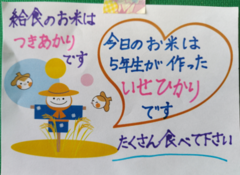 給食のお米は
つきあかり
です
今日のお米は
5年生が作った
いせひかり
です
たくさん食べて下さい